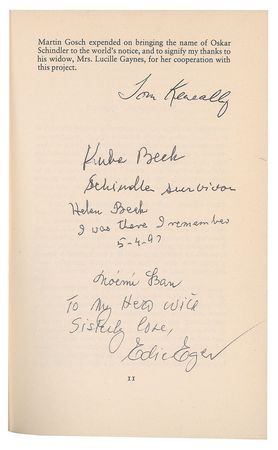 Martin Gosch expended on bringing the name of Oskar
Schindler to the world's notice, and to signify my thanks to
his widow, Mrs. Lucille Gaynes, for her cooperation with
this project.
Tom Keneally
Kuba Beck
Schindler survivor
Helen Beck
I was there I remember
5-4-97
Noémi Ban
To My Hero with
Sisterly love,
Edie Eger
11